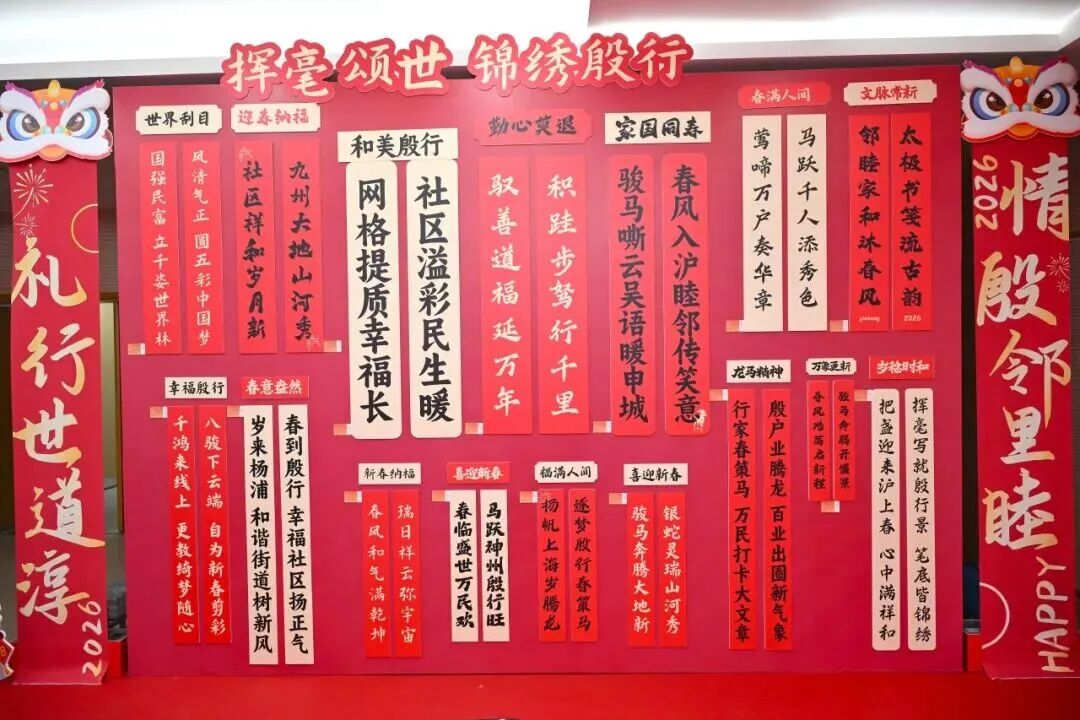 挥毫颂世 锦绣殷行
情殷邻里睦
2026
HAPPY
礼行世道淳
2026
世界刮目
风清气正 圆五彩中国梦
国强民富 立千姿世界林
迎春纳福
九州大地山河秀
社区祥和岁月新
和美殷行
社区溢彩民生暖
网格提质幸福长
勤心莫退
积跬步驽行千里
驭善道福延万年
家国同春
春风入沪睦邻传笑意
骏马嘶云吴语暖申城
春满人间
马跃千人添秀色
莺啼万户奏华章
文脉常新
太极书笺流古韵
邻睦家和沐春风
2026
幸福殷行
八骏下云端 自为新春剪彩
千鸿来线上 更教绮梦随心
春意盎然
春到殷行 幸福社区扬正气
岁来杨浦 和谐街道树新风
新春纳福
瑞日祥云弥宇宙
春风和气满乾坤
喜迎新春
马跃神州殷行旺
春临盛世万民欢
福满人间
逐梦殷行春策马
扬帆上海岁腾龙
喜迎新春
银蛇灵瑞山河秀
骏马奔腾大地新
龙马精神
殷户业腾龙 百业出圈新气象
行家春策马 万民打卡大文章
万象更新
骏马奔腾开盛景
春风浩荡启新程
岁稔时和
挥毫写就殷行景 笔底皆锦绣
把盏迎来沪上春 心中满祥和